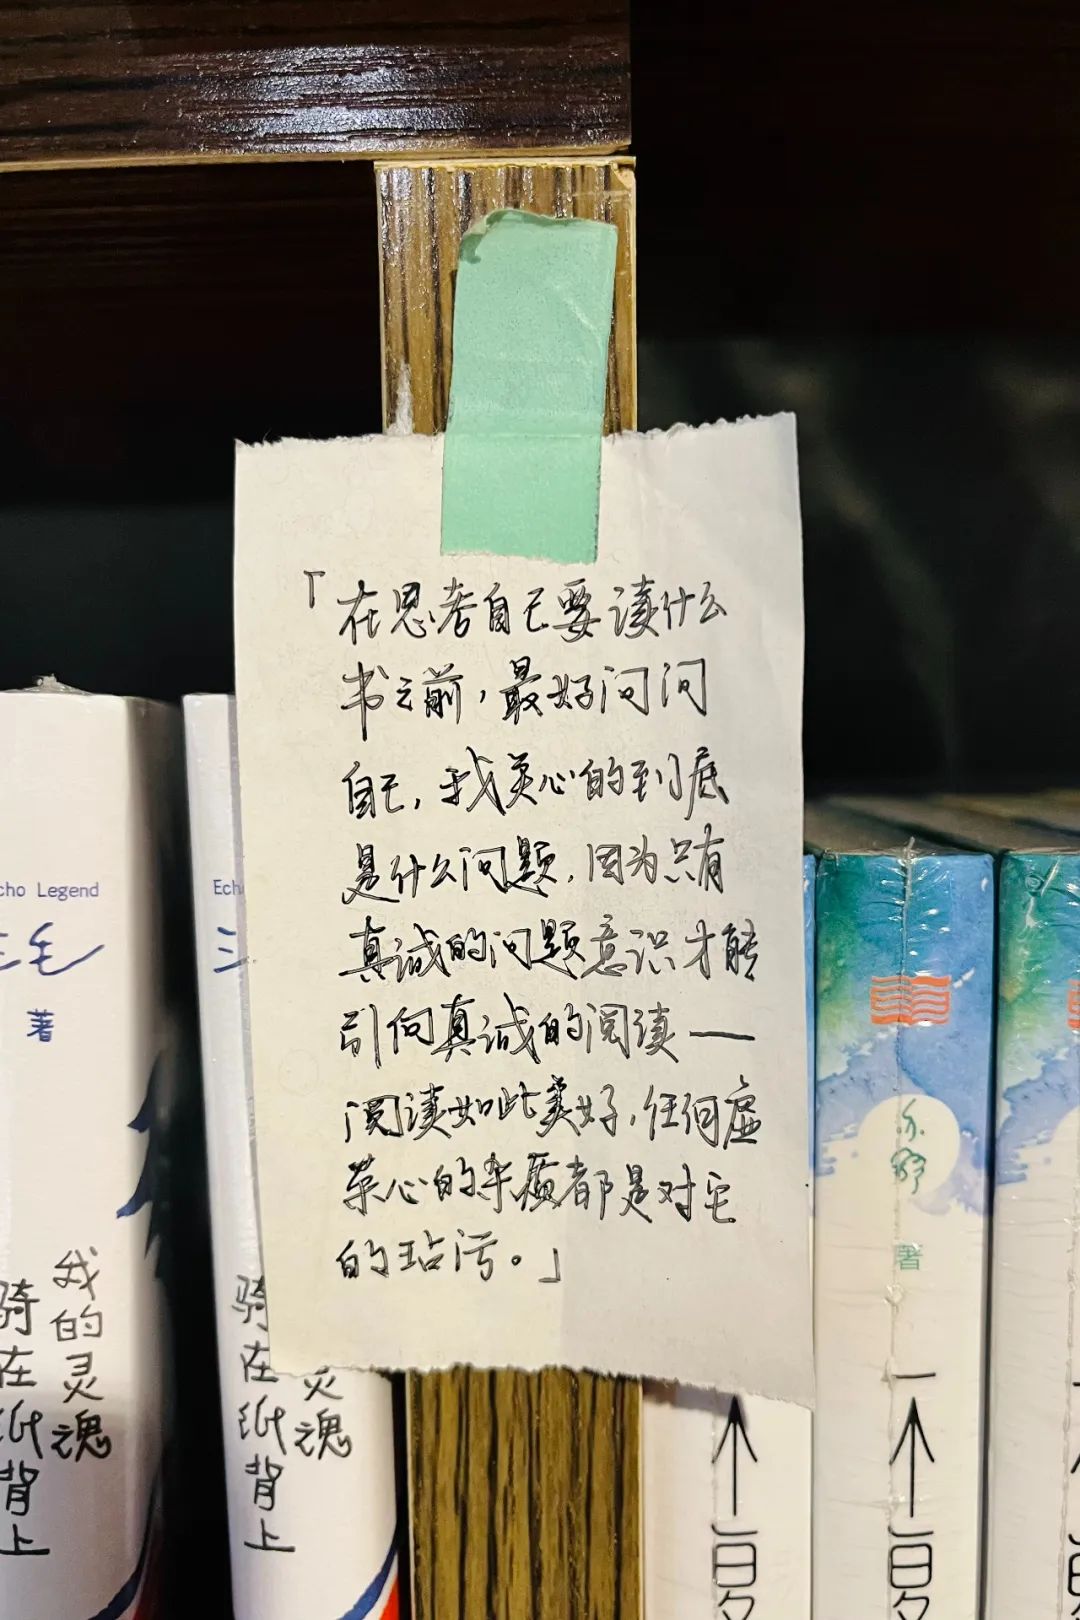 「在思考自己要读什么
书之前，最好问问
自己，我关心的到底
是什么问题，因为只有
真诚的问题意识才能
引向真诚的阅读——
阅读如此美好，任何虚
荣心的杂质都是对它
的玷污。」
cho Legend
三毛
著
我的灵魂
骑在纸背上
Ech
三
灵魂
骑在纸背上
亦舒
著
一